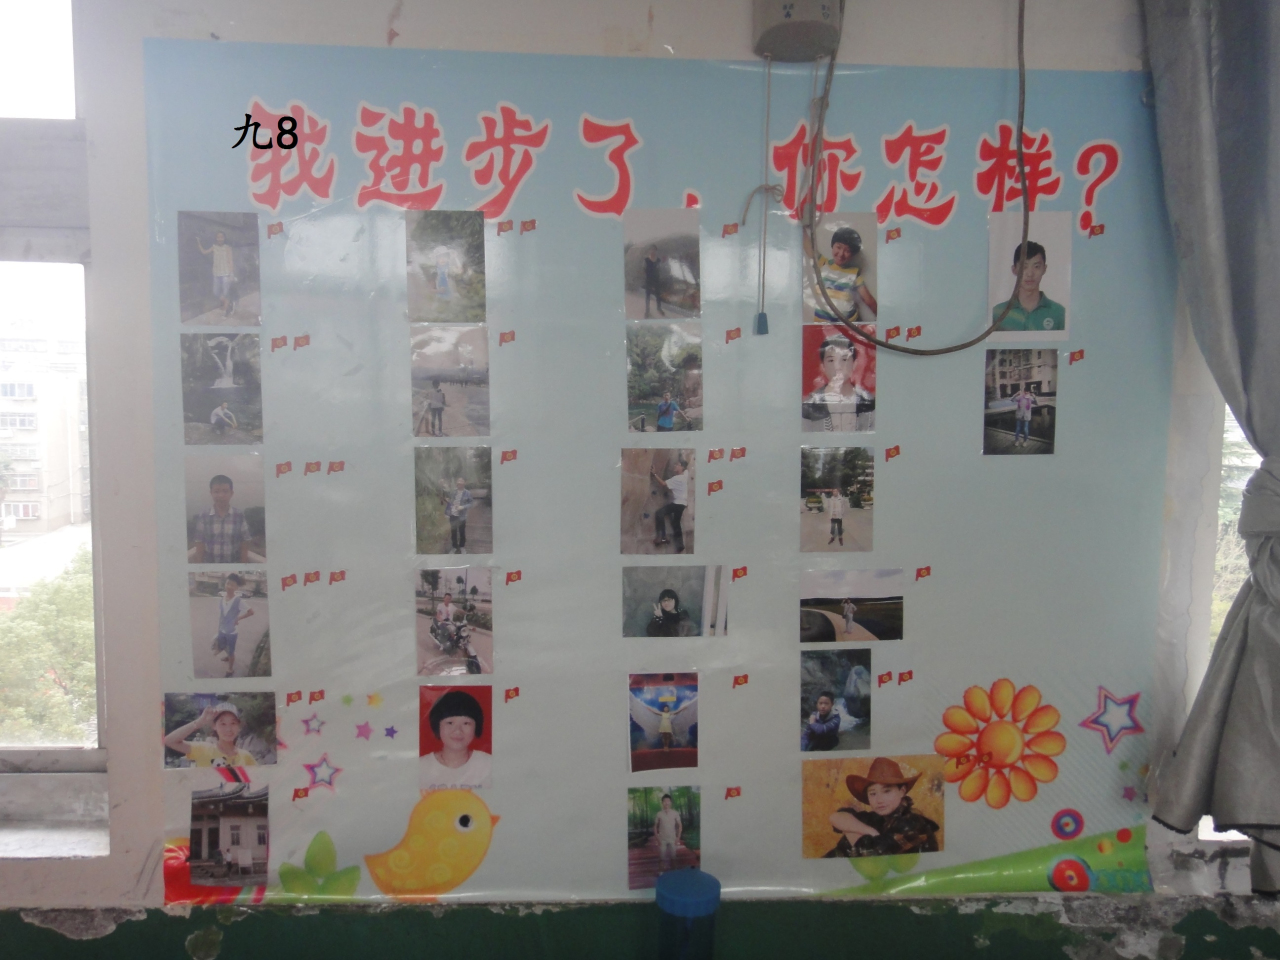 九8
我进步了，你怎样？